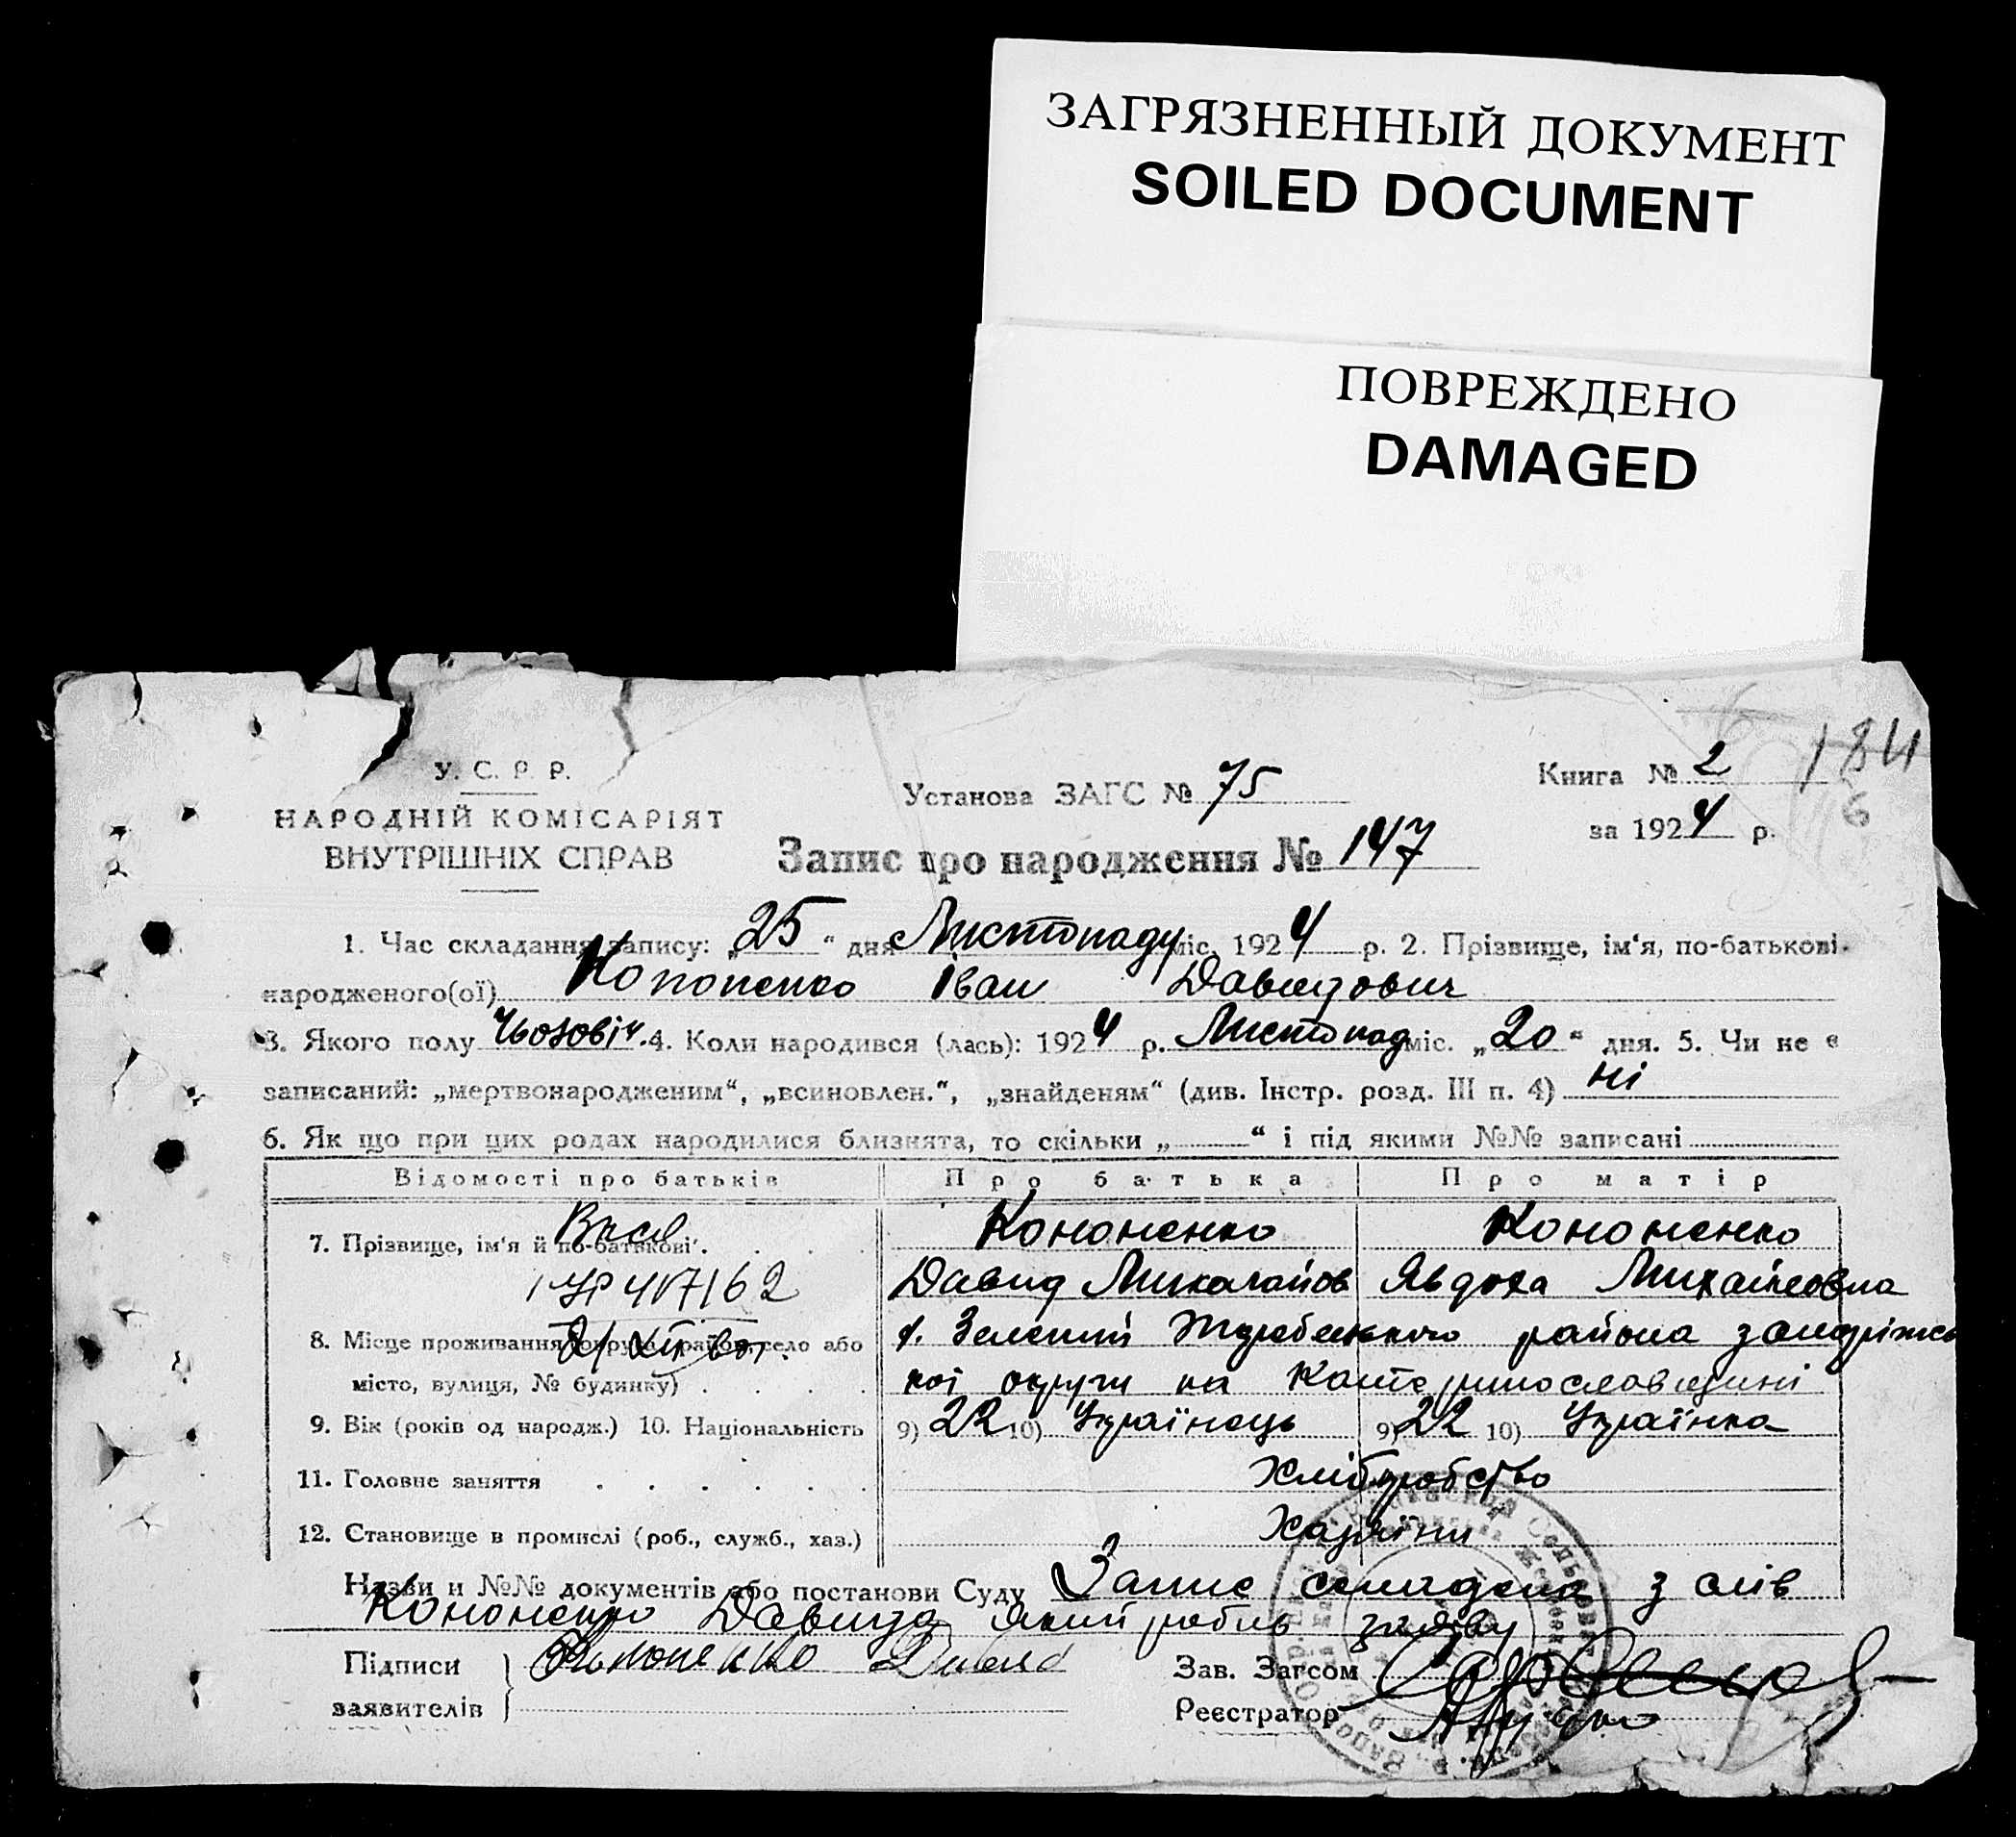 ЗАГРЯЗНЕННЫЙ ДОКУМЕНТ
SOILED DOCUMENT
ПОВРЕЖДЕНО
DAMAGED
184
У. С. Р. Р.
НАРОДНІЙ КОМІСАРІЯТ
ВНУТРІШНІХ СПРАВ
Установа ЗАГС № 75
Книга № 2
за 1924 р.
6
Запис про народження № 147
1. Час складання запису: „25“ дня Листопаду міс. 1924 р. 2. Прізвище, ім‘я, по-батькові
народженого(ої) Кононенко Іван Давидович
3. Якого полу Чьозовіч. 4. Коли народився (лась): 1924 р. Листопад міс. „20“ дня. 5. Чи не є
записаний: „мертвонародженим“, „всиновлен.“, „знайденям“ (див. Інстр. розд. III п. 4) ні
6. Як що при цих родах народилися близнята, то скільки „ “ і під якими №№ записані
Відомості про батьків Про батька Про матір
7. Прізвище, ім‘я й по-батькові Кононенко Кононенко
Давид Миколайов Явдоха Михайловна
8. Місце проживання (округа, район, село або Зелений району
місто, вулиця, № будинку) кої округи на Катеринославщині
9. Вік (років од народж.) 10. Національність 9) 22 10) Українець 9) 22 10) Українка
11. Головне заняття Хліборобство
12. Становище в промислі (роб., служб., хаз.) Хазяїни
Назви и №№ документів або постанови Суду Запис складена з слів
Кононенко Давида який робив заяву
Підписи заявителів Кононенко Давид
Зав. Загсом
Реєстратор